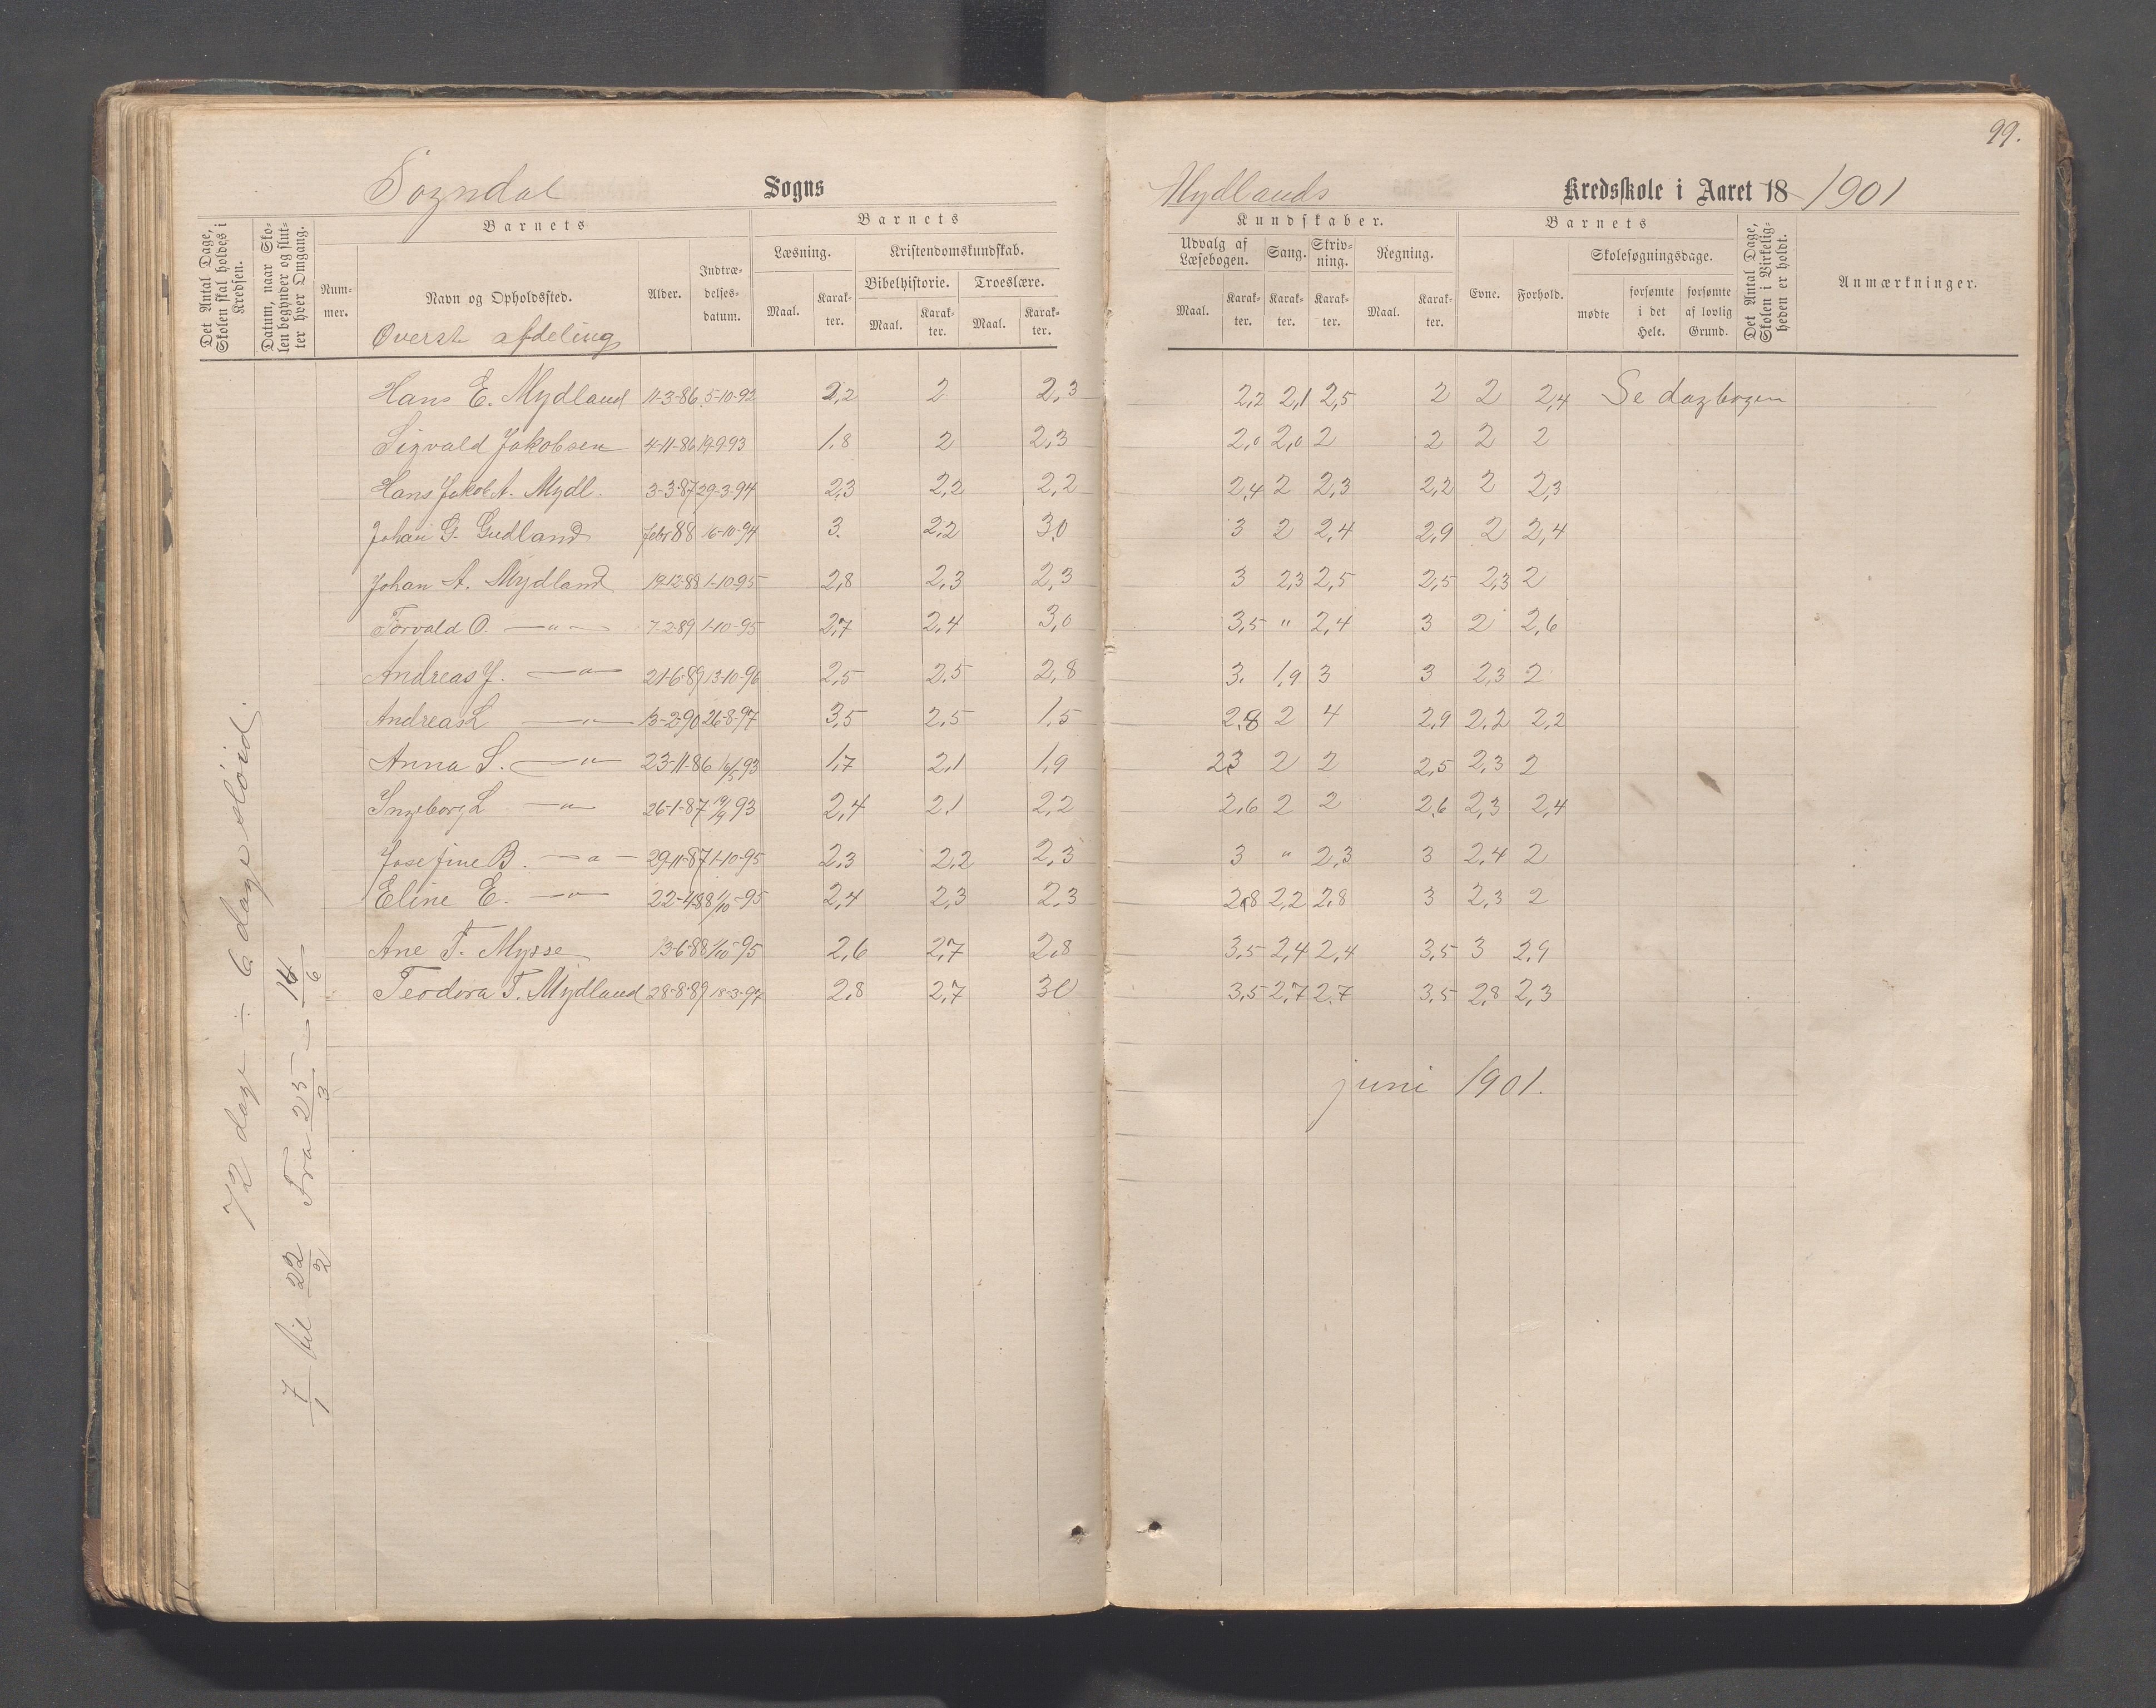 99.
Sogndal Sogns Mydlands Kredsskole i Aaret 18 1901
Det Antal Dage, Skolen skal holdes i Kredsen.
Datum, naar Skolen begynder og slutter hver Omgang.
Barnets
Nummer.
Navn og Opholdssted.
Alder.
Indtrædelsesdatum.
Barnets
Læsning.
Kristendomskundskab.
Bibelhistorie.
Troeslære.
Maal. Karakter. Maal. Karakter. Maal. Karakter.
Kundskaber.
Udvalg af Læsebogen.
Sang.
Skrivning.
Regning.
Maal. Karakter. Karakter. Karakter. Maal. Karakter.
Barnets
Evne.
Forhold.
Skolesøgningsdage.
mødte
forsømte i det Hele.
forsømte af lovlig Grund.
Det Antal Dage, Skolen i Virkeligheden er holdt.
Anmærkninger.
Øverste afdeling
Hans E. Mydland 11-3-86 5-10-92 2,2 2 2,3 2,2 2,1 2,5 2 2 2,4 Se dagbogen
Sigvald Jakobsen 4-11-86 19-9-93 1,8 2 2,3 2,0 2,0 2 2 2 2
Hans Jakob A. Mydl. 3-3-87 29-3-94 2,3 2,2 2,2 2,4 2 2,3 2,2 2 2,3
Johan G. Gudland febr 88 16-10-94 3. 2,2 3,0 3 2 2,4 2,9 2 2,4
Johan A. Mydland 19-12-88 1-10-95 2,8 2,3 2,3 3 2,3 2,5 2,5 2,3 2
Torvald O. —"— 7-2-89 1-10-95 2,7 2,4 3,0 3,5 " 2,4 3 2 2,6
Andreas J. —"— 21-6-89 13-10-96 2,5 2,5 2,8 3. 1,9 3 3 2,3 2
Andreas L —"— 13-2-90 26-8-97 3,5 2,5 1,5 2,8 2 4 2,9 2,2 2,2
Anna S. —"— 23-11-86 16/5 93 1,7 2,1 1,9 2,3 2 2 2,5 2,3 2
Ingeborg L —"— 26-1-87 19/9 93 2,4 2,1 2,2 2,6 2 2 2,6 2,3 2,4
Josefine B. —"— 29-11-87 1-10-95 2,3 2,2 2,3 3 " 2,3 3 2,4 2
Eline E. —"— 22-4-88 1/10-95 2,4 2,3 2,3 2,8 2,2 2,8 3 2,3 2
Ane T. Mysse 13-6-88 1/10-95 2,6 2,7 2,8 3,5 2,4 2,4 3,5 3 2,9
Teodora T. Mydland 28-8-89 18-3-97 2,8 2,7 3,0 3,5 2,7 2,7 3,5 2,8 2,3
juni 1901.
72 dage ÷ 6 dage sløid.
7/1 til 22/2 Fra 25/3 — 14/6